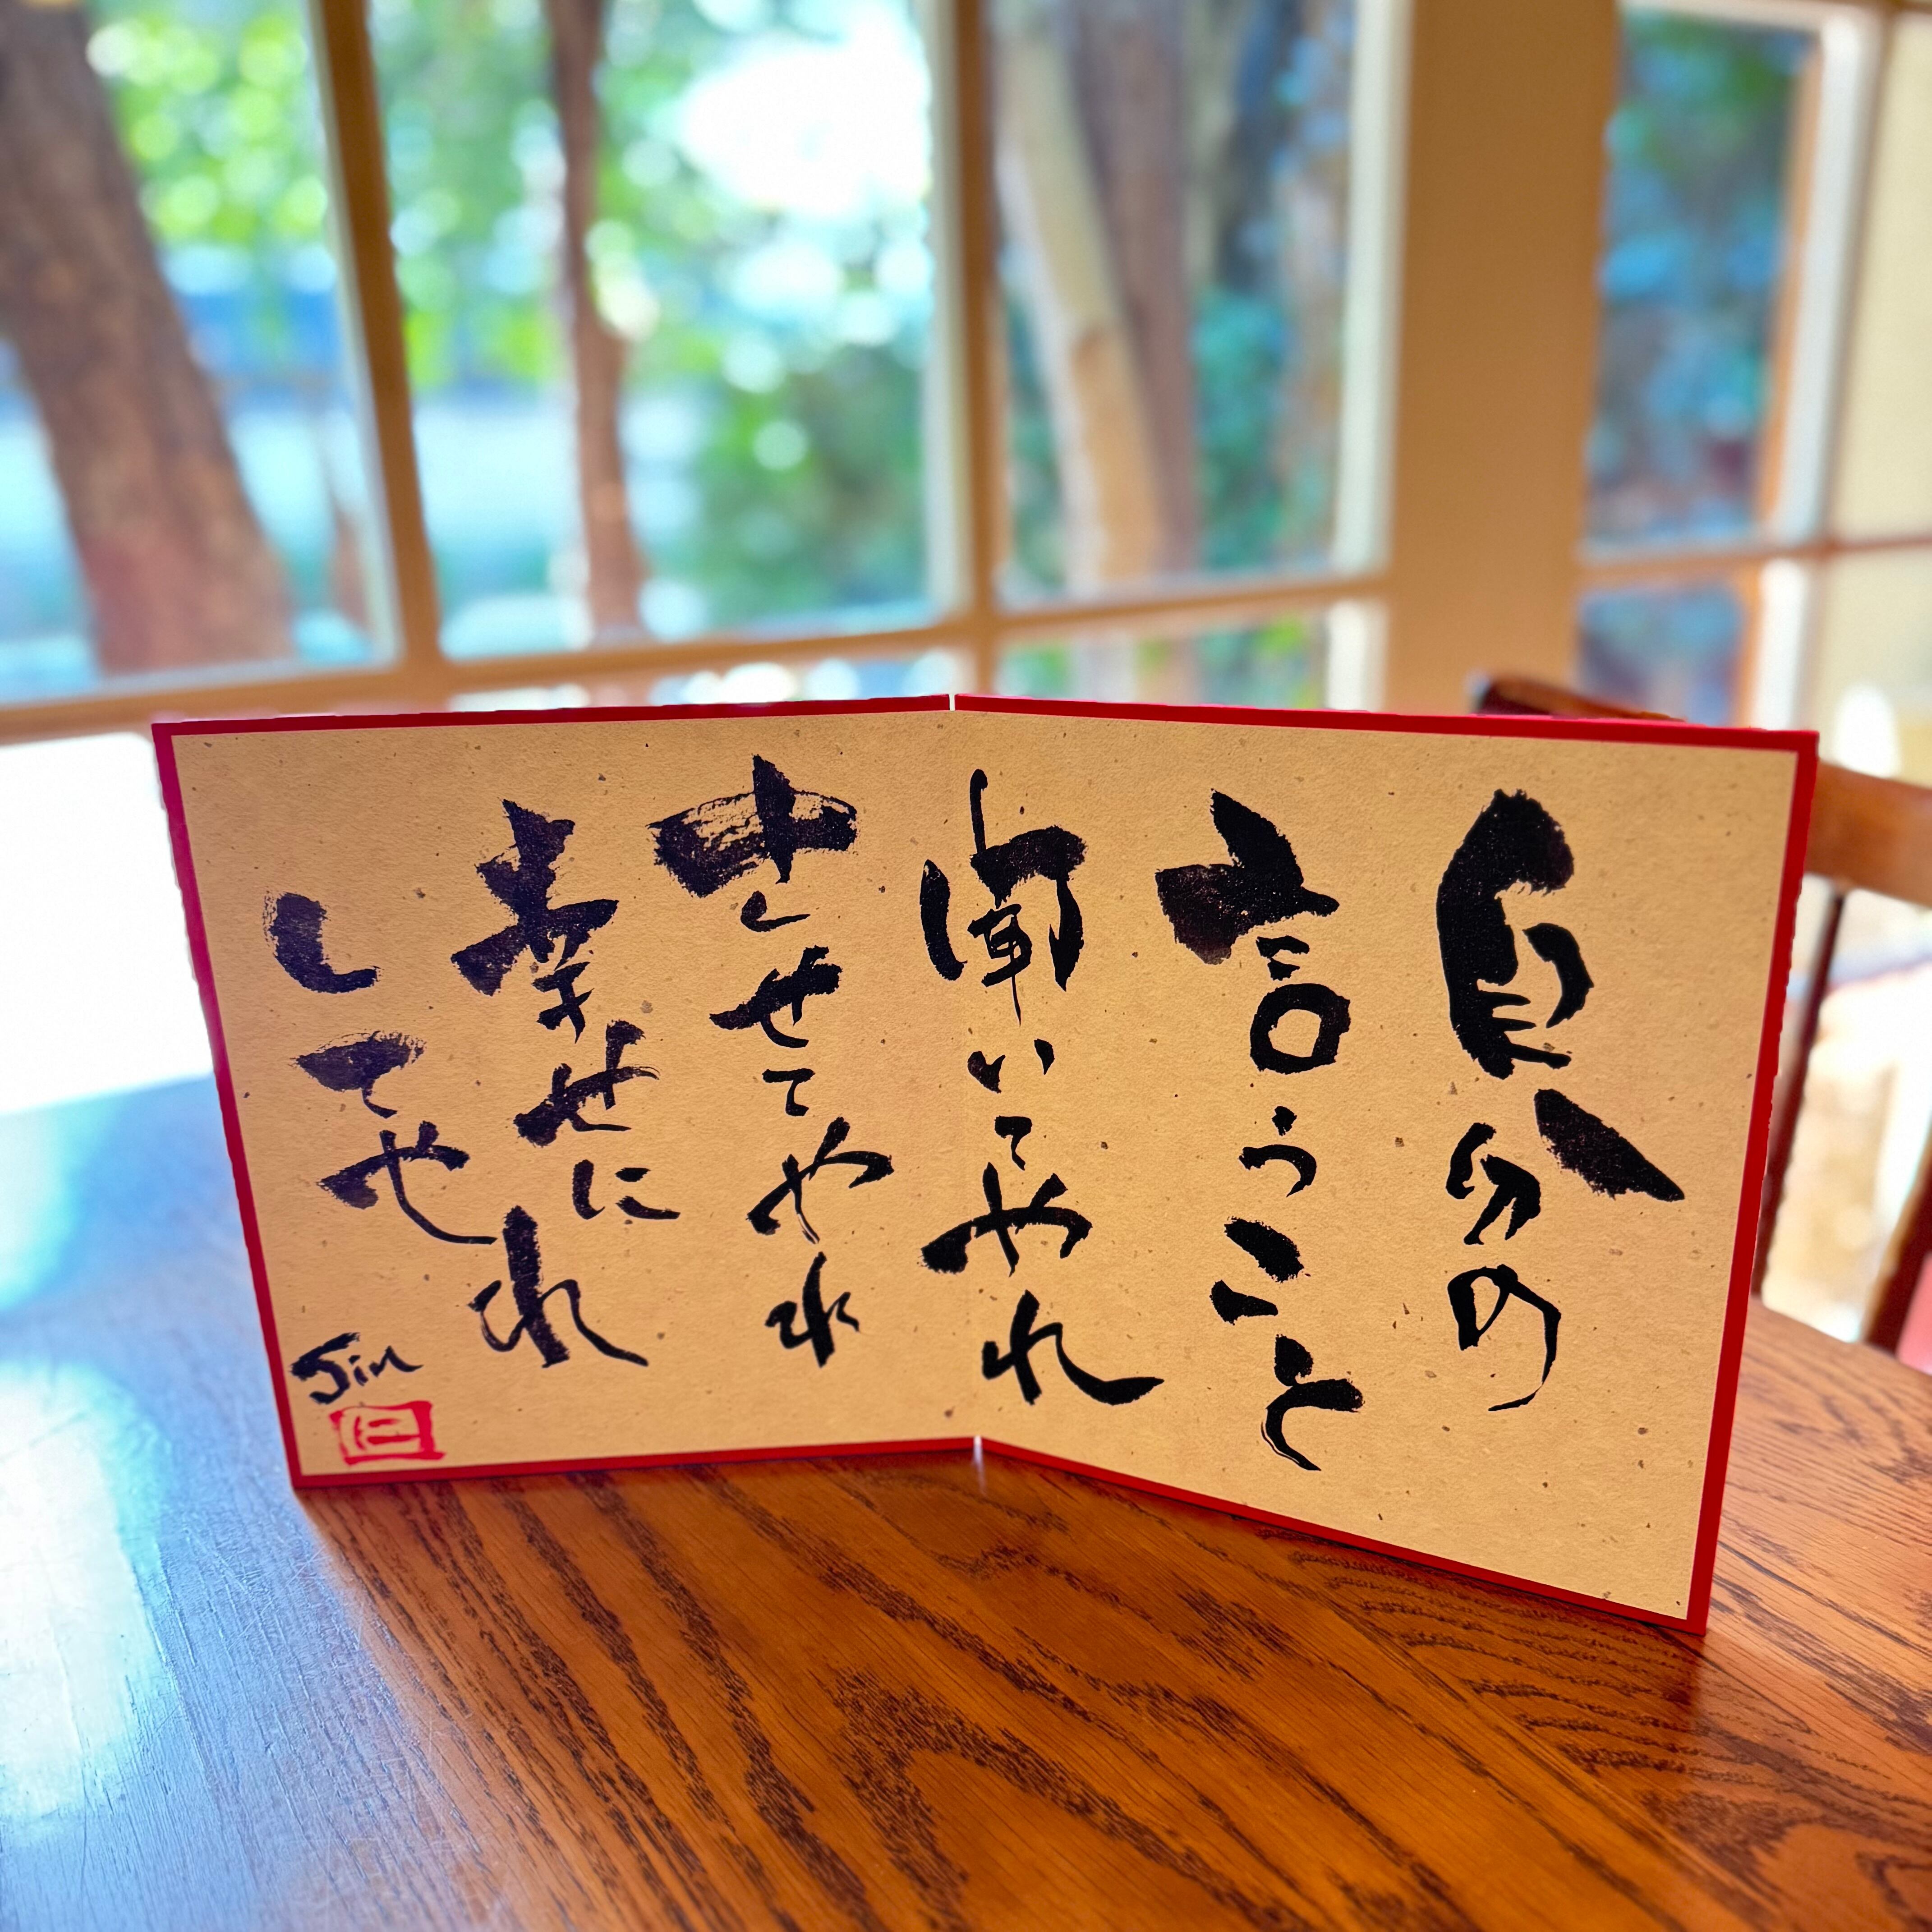 自分の
言うこと
聞いてやれ
させてやれ
幸せに
してやれ
Jin
仁